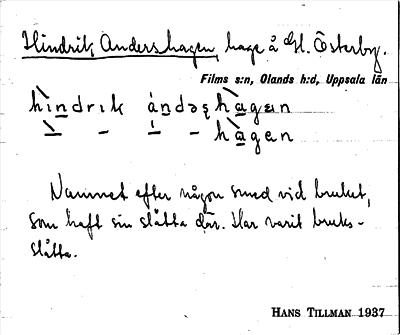 Hindrik Andershagen, hage å Gl. Österby.
Films s:n, Olands h:d, Uppsala län
hìndrɩk ándəʂhàgɛn
– – hàgɛn
Namnet efter någon smed vid bruket,
som haft sin slåtta där. Har varit bruks-
slåtta.
HANS TILLMAN 1937